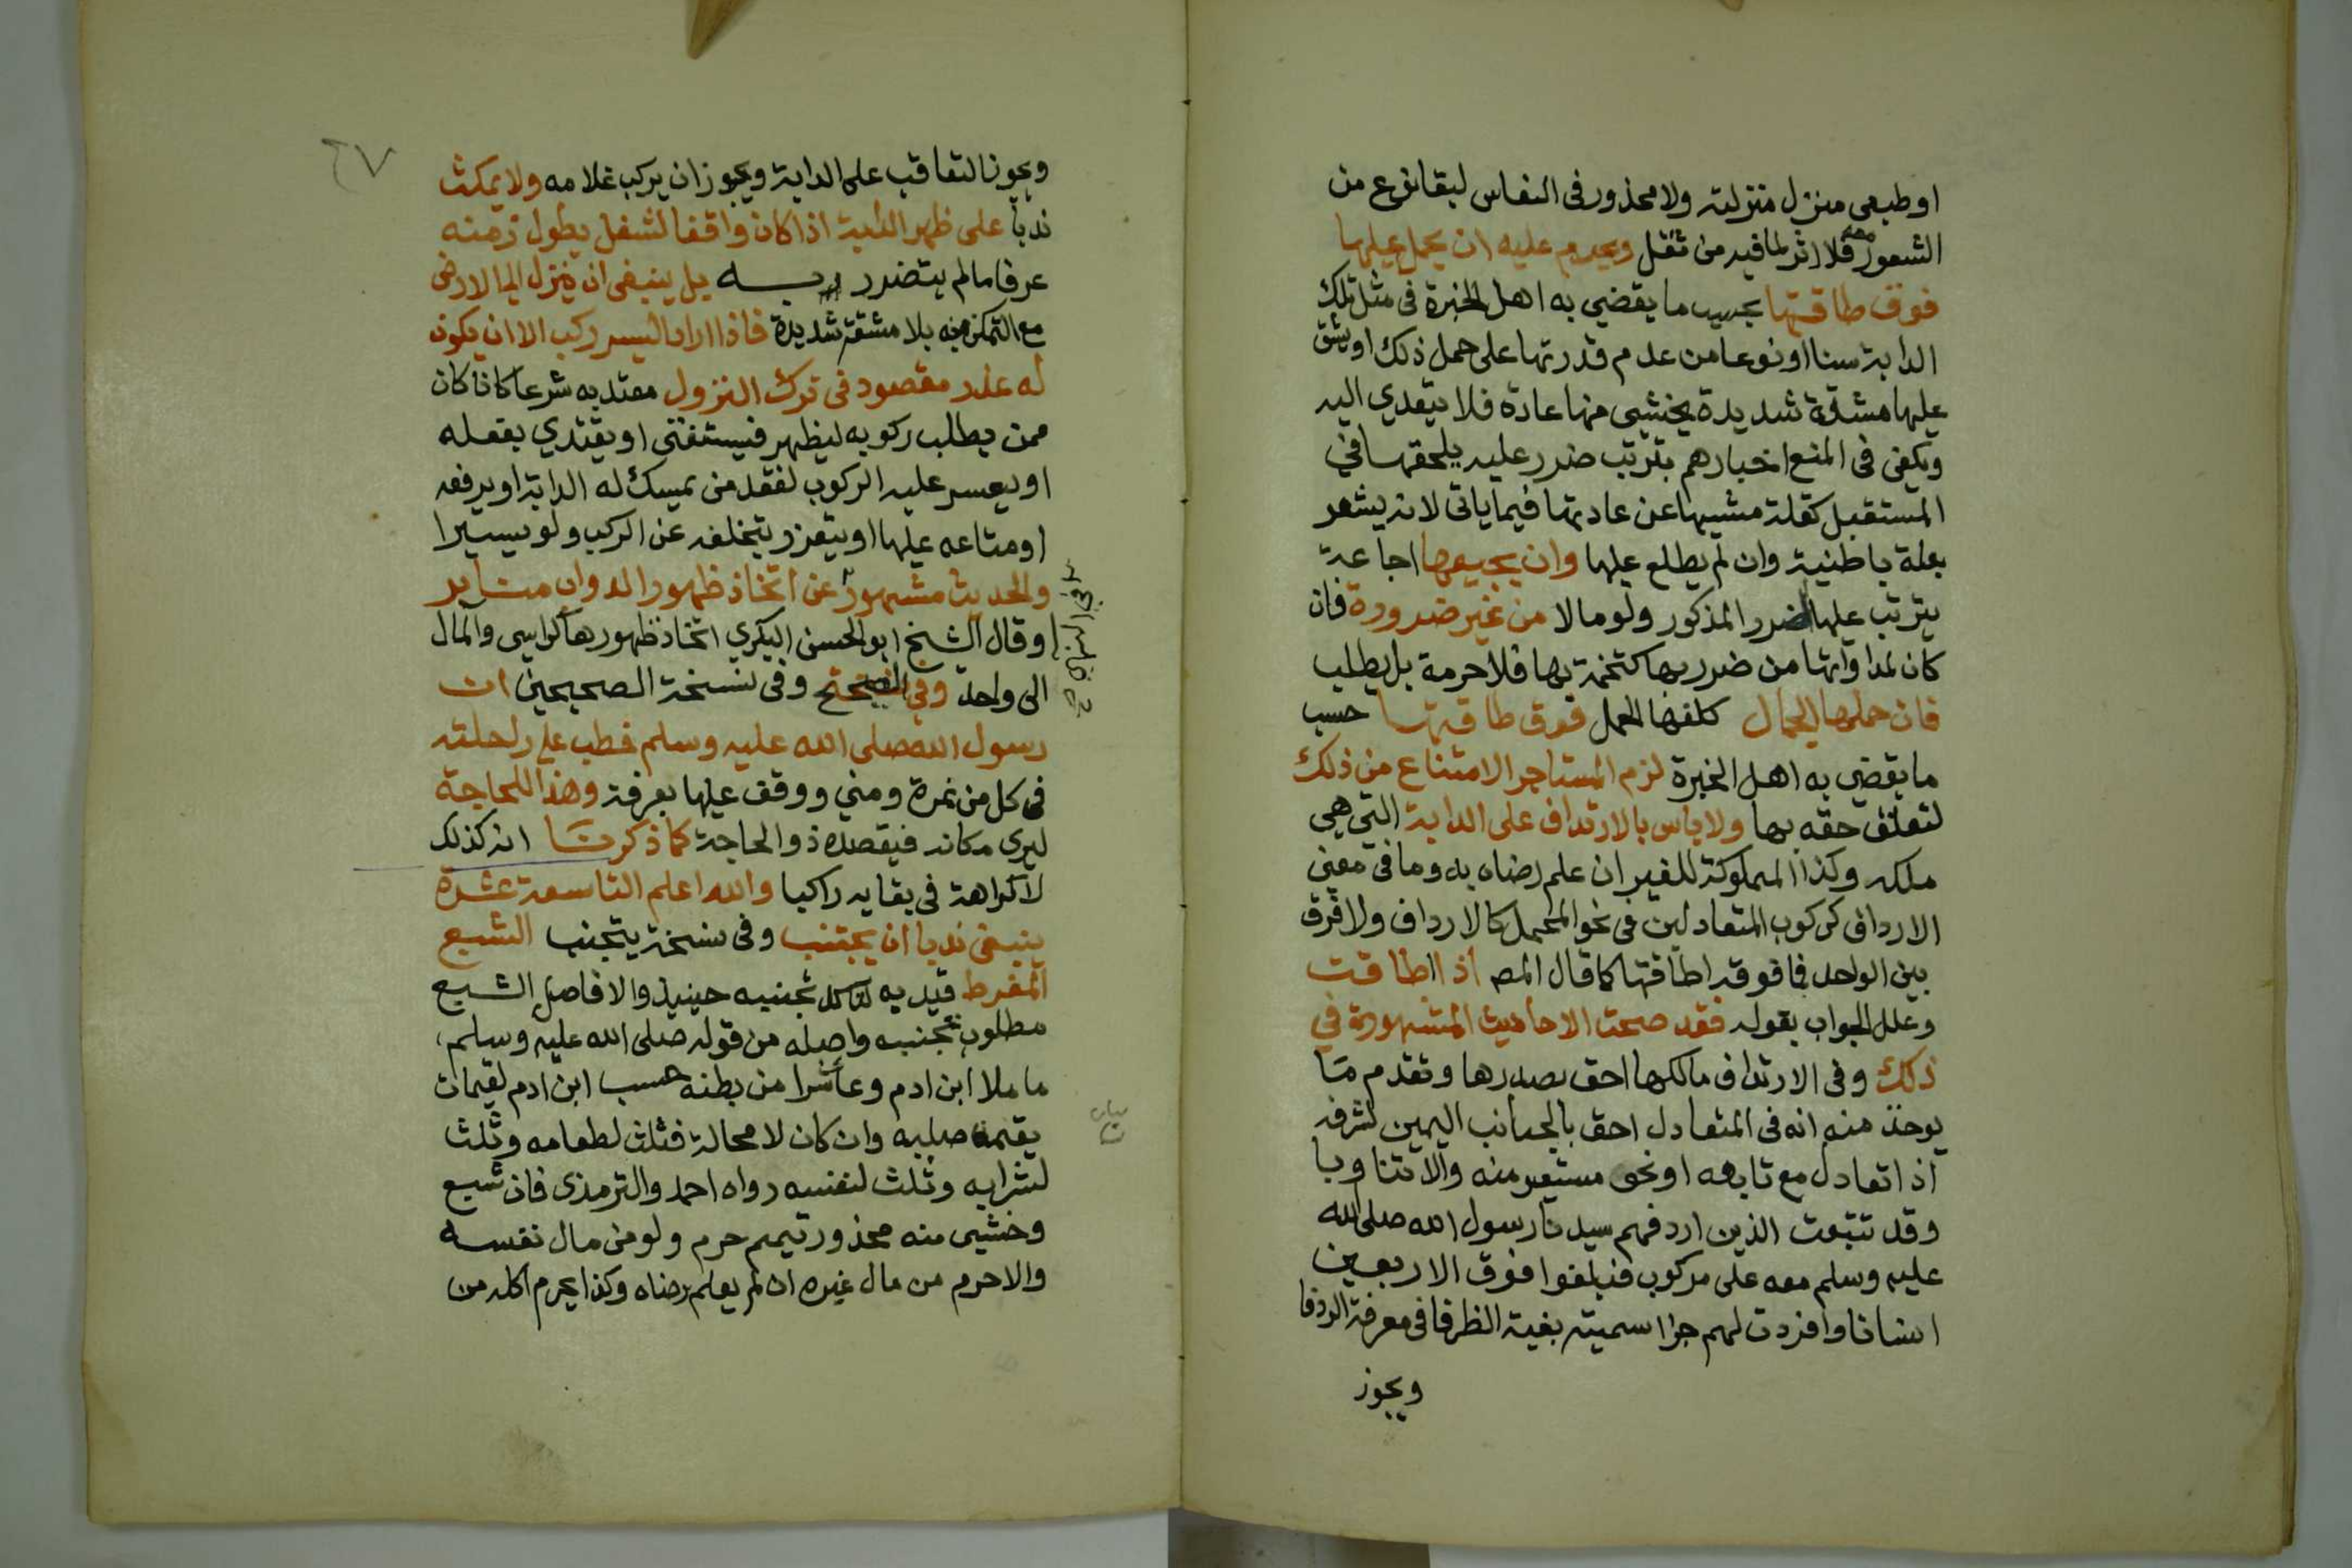 او طبعي منزل منزلته ولا محذور في النعاس لبقا نوع من
الشعور معه فلا اثر لما فيه من ثقل ويحرم عليه ان يحمل عليها
فوق طاقتها بحسب ما يقضي به اهل الخبرة في مثل تلك
الدابة سنا او نوعا من عدم قدرتها على حمل ذلك او يشق
عليها مشقة شديدة يخشى منها عادة فلا يتعدي اليه
ويكفى فى المنع اخبارهم بترتب ضرر عليه يلحقها في
المستقبل كقلة مشيها عن عادتها فيما ياتى لانه يشعر
بعلة باطنية وان لم يطلع عليها وان يجيعها اجاعة
يترتب عليها الضرر المذكور ولو مالا من غير ضرورة فان
كان لمداواتها من ضرر بها كتخمة بها فلا حرمة بل يطلب
فان حملها الجمال كلفها الحمل فوق طاقتها حسب
ما يقضي به اهل الخبرة لزم المستاجر الامتناع من ذلك
لتعلق حقه بها ولا باس بالارتداف على الدابة التي هي
ملكه وكذا المملوكة للغير ان علم رضاه به وما فى معنى
الارداف كركوب المتعادلين فى نحو المحمل كالارداف ولا فرق
بين الواحد فما فوقه اطاقتها كما قال المص اذا اطاقت
وعلل الجواب بقوله فقد صحت الاحاديث المشهورة في
ذلك وفى الارتداف مالكها احق بصدرها وتقدم ما
يوخذ منه انه فى المتعادل احق بالجانب اليمين لشرفه
اذا تعادل مع تابعه او نحو مستعير منه والا تناوبا
وقد تتبعت الذين اردفهم سيدنا رسول الله صلى الله
عليه وسلم معه على مركوب فبلغوا فوق الاربعين
انسانا وافردت لهم جزا سميته بغية الظرفا فى معرفة الردفا
ويجوز
٢٧
ويجوز التعاقب على الدابة ويجوز ان يركب غلامه ولا يمكث
ندبا على ظهر الدابة اذا كان واقفا لشغل يطول زمنه
عرفا ما لم يتضرر به بل ينبغى ان ينزل الى الارض
مع التمكن منه بلا مشقة شديدة فاذا اراد السير ركب الا ان يكون
له عذر مقصود فى ترك النزول معتد به شرعا كان كان
ممن يطلب ركوبه ليظهر فيستفتى او يقتدي بفعله
او يعسر عليه الركوب لفقد من يمسك له الدابة او يرفعه
او متاعه عليها او يتعزر بتخلفه عن الركب ولو يسيرا
والحديث مشهور عن اتخاذ ظهور الدواب منابر
وقال الشيخ ابو الحسن البكري اتخاذ ظهورها كراسى والمال
الى واحد وفي الصحيح وفى نسخة الصحيحين ان
رسول الله صلى الله عليه وسلم خطب على راحلته
فى كل من نمرة ومني ووقف عليها بعرفة وهذا للحاجة
ليرى مكانه فيقصده ذو الحاجة كما ذكرنا انه كذلك
لا كراهة فى بقايه راكبا والله اعلم التاسعة عشرة
ينبغى ندبا ان يجتنب وفى نسخة يتجنب الشبع
المفرط قيد به لتاكد تجنبه حينيذ والا فاصل الشبع
مطلوب تجنبه واصله من قوله صلى الله عليه وسلم
ما ملا ابن ادم وعا شرا من بطنه حسب ابن ادم لقيمات
يقمن صلبه وان كان لا محالة فثلث لطعامه وثلث
لشرابه وثلث لنفسه رواه احمد والترمذى فان شبع
وخشى منه محذور تيمم حرم ولو من مال نفسه
والا حرم من مال غيره ان لم يعلم رضاه وكذا يحرم اكله من